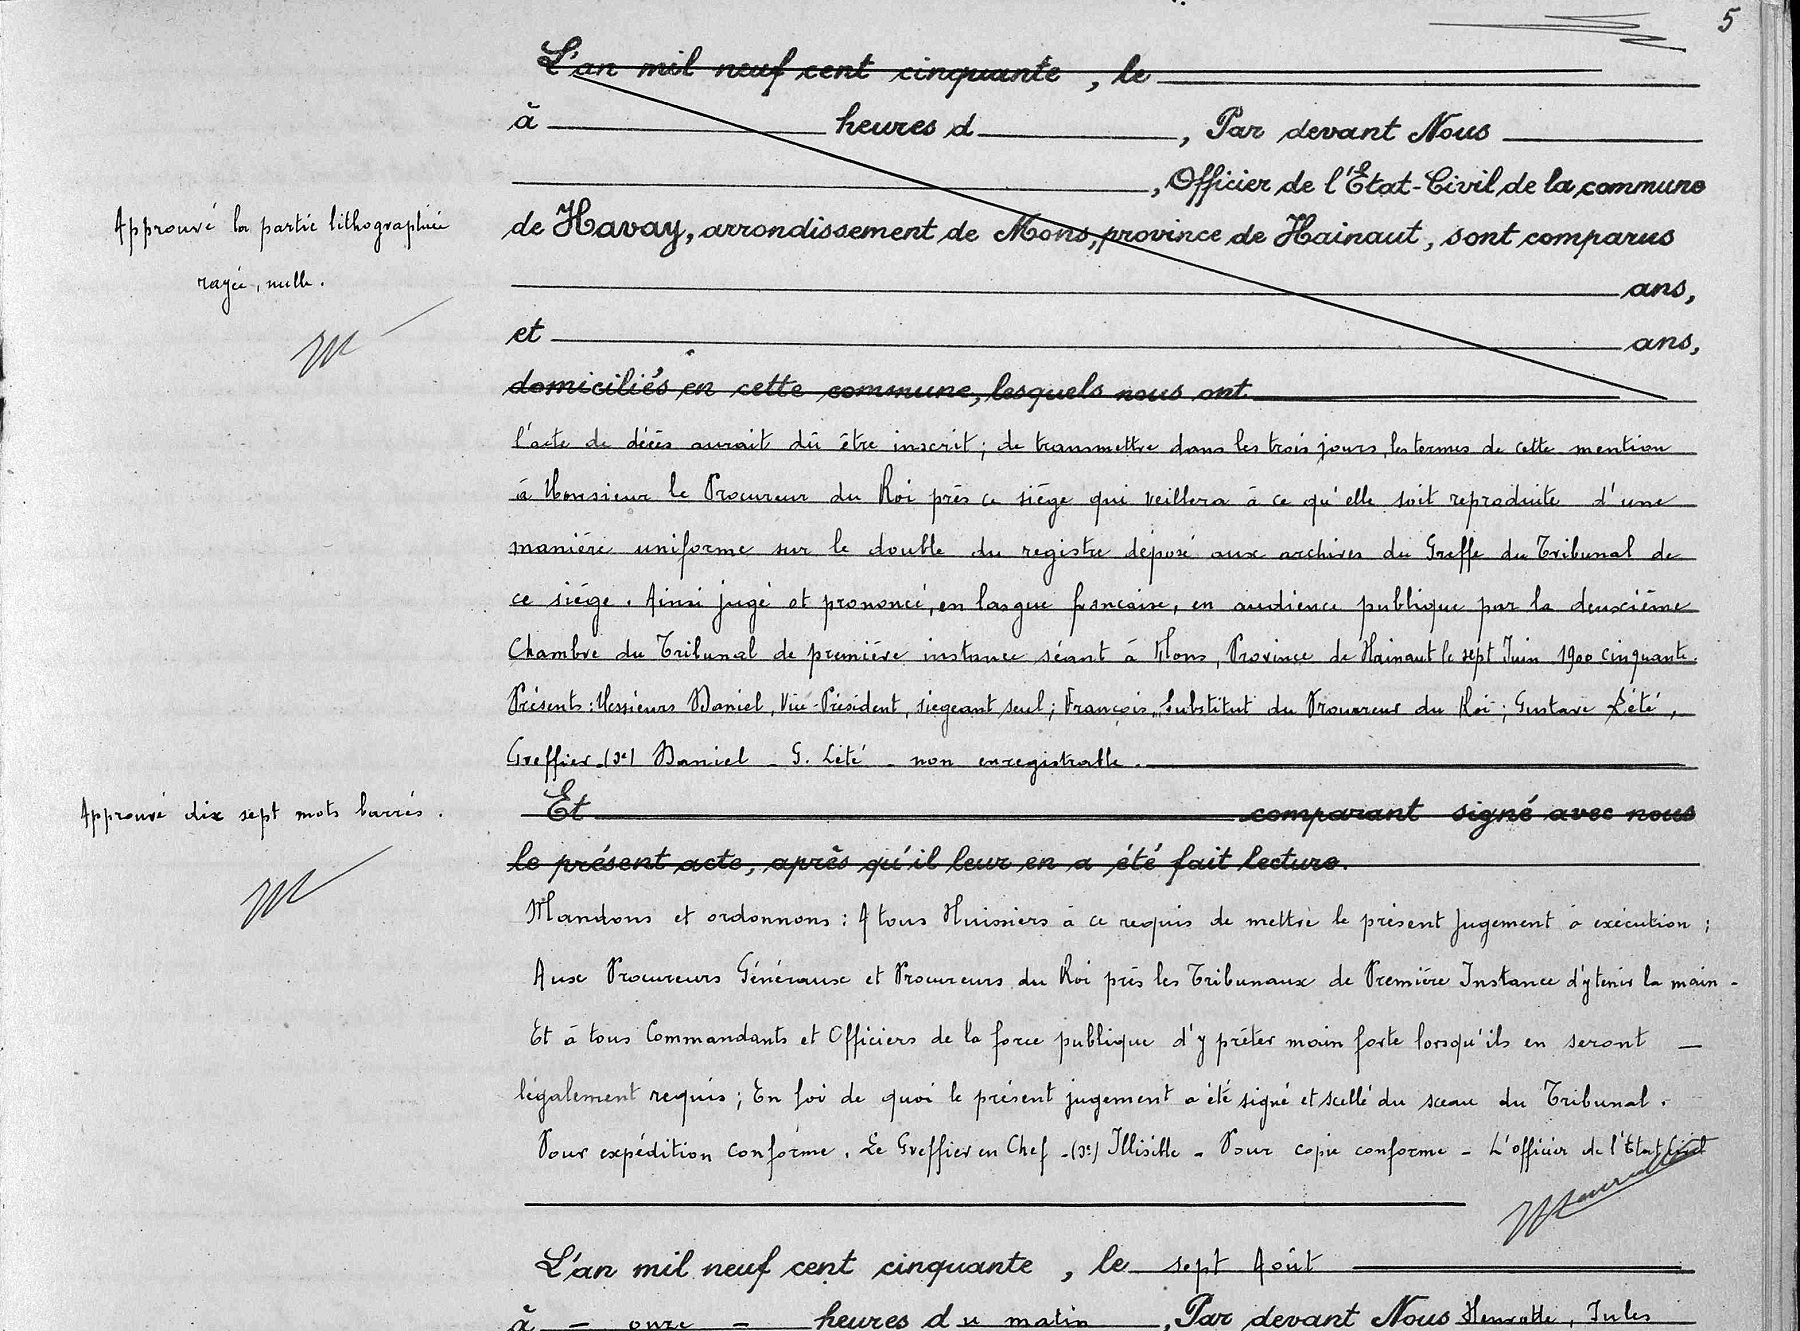 5
L'an mil neuf cent cinquante, le
à heures d, Par devant Nous
, Officier de l'Etat-Civil de la commune
de Havay, arrondissement de Mons, province de Hainaut, sont comparus
ans,
et ans,
domiciliés en cette commune, lesquels nous ont
Approuvé la partie lithographiée
rayée, nulle.
l'acte de décès aurait dû être inscrit; de transmettre dans les trois jours, les termes de cette mention
à Monsieur le Procureur du Roi près ce siège qui veillera à ce qu'elle soit reproduite d'une
manière uniforme sur le double du registre déposé aux archives du Greffe du Tribunal de
ce siège. Ainsi jugé et prononcé, en langue française, en audience publique par la deuxième
Chambre du Tribunal de première instance séant à Mons, Province de Hainaut le sept Juin 1900 cinquante.
Présents: Messieurs Daniel, Vice-Président, siégeant seul; François, Substitut du Procureur du Roi; Gustave Lété,
Greffier. (Sé) Daniel - G. Lété - non enregistrable.
Approuvé dix sept mots barrés.
Et comparant signé avec nous
le présent acte, après qu'il leur en a été fait lecture.
Mandons et ordonnons: A tous Huissiers à ce requis de mettre le présent Jugement à exécution;
Aux Procureurs Généraux et Procureurs du Roi près les Tribunaux de Première Instance d'y tenir la main -
Et à tous Commandants et Officiers de la force publique d'y prêter main forte lorsqu'ils en seront -
légalement requis; En foi de quoi le présent jugement a été signé et scellé du sceau du Tribunal.
Pour expédition conforme. Le Greffier en Chef - (Sé) Illisible - Pour copie conforme - L'officier de l'Etat Civil
L'an mil neuf cent cinquante, le sept Août
à - onze - heures du matin, Par devant Nous Jules